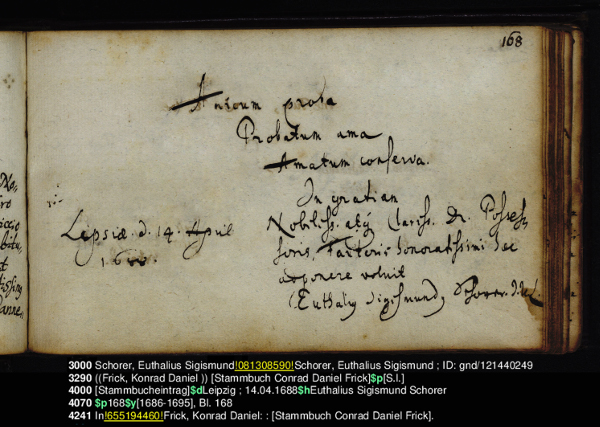 168
Amicum proba
Probatum ama
Amatum conserva.
In gratiam
Nobiliss. atq Clariss. Dn. Posses-
soris, Fautoris honoratissimi haec
apponere voluit
Euthalius Sigismund Schorer.
Lipsiæ. d. 14. April
3000 Schorer, Euthalius Sigismund!081308590!Schorer, Euthalius Sigismund ; ID: gnd/121440249
3290 ((Frick, Konrad Daniel )) [Stammbuch Conrad Daniel Frick]$p[S.l.]
4000 [Stammbucheintrag]$dLeipzig ; 14.04.1688$hEuthalius Sigismund Schorer
4070 $p168$y[1686-1695], Bl. 168
4241 In!655194460!Frick, Konrad Daniel: : [Stammbuch Conrad Daniel Frick].